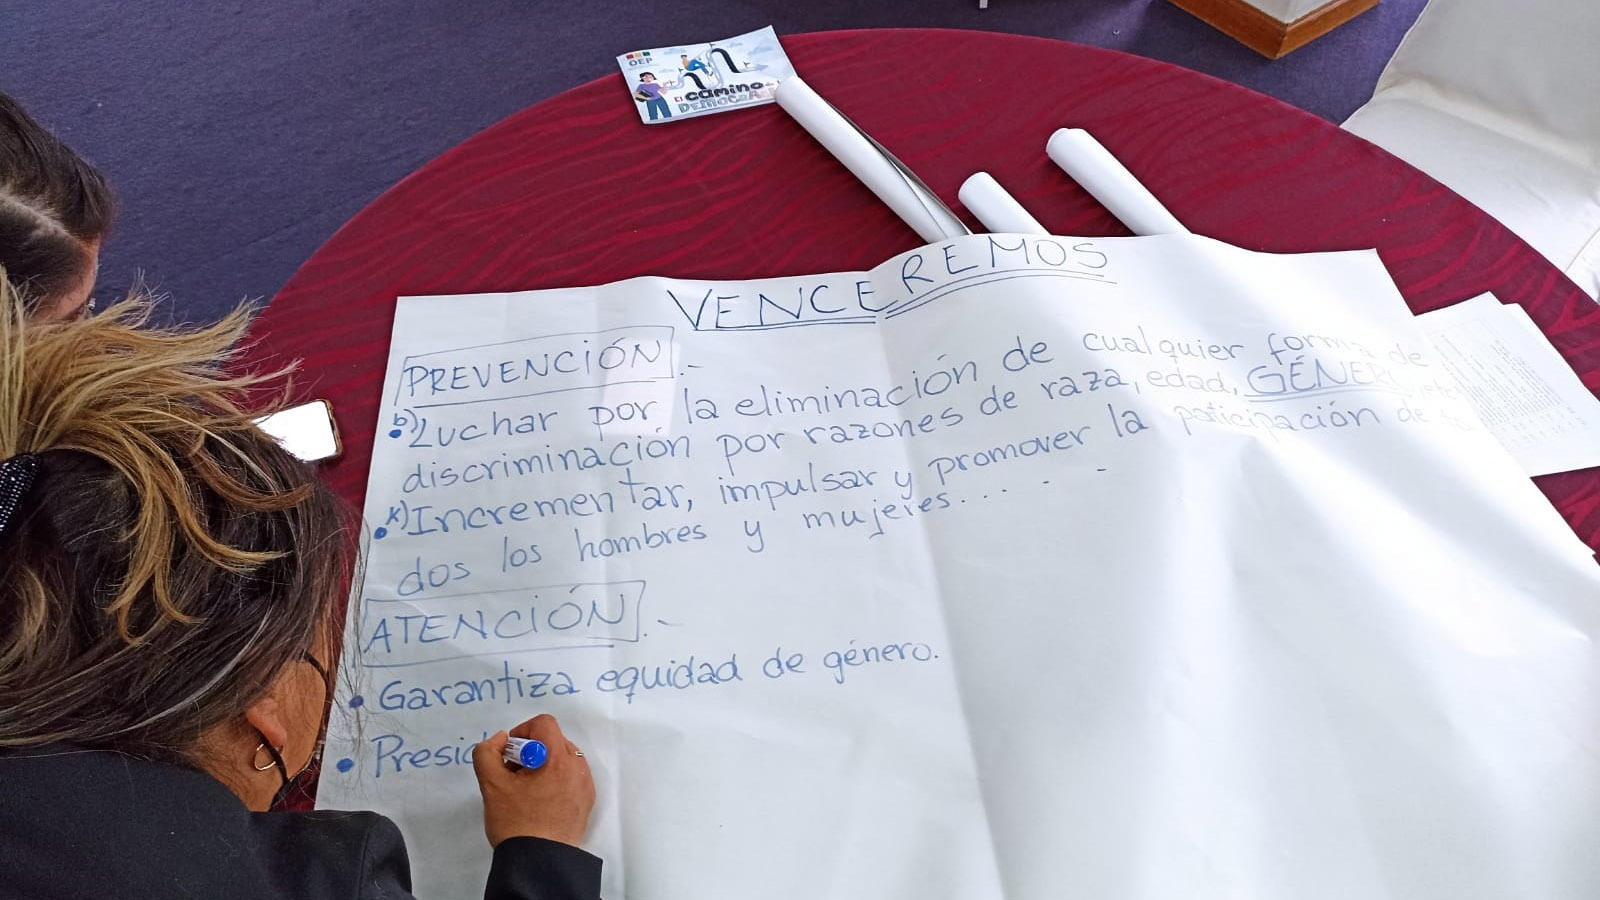 OEP
El camino
VENCEREMOS
PREVENCIÓN.-
b) Luchar por la eliminación de cualquier forma de
discriminación por razones de raza, edad, GÉNERO, etc
k) Incrementar, impulsar y promover la paticipación de to
dos los hombres y mujeres.....-
ATENCIÓN.-
• Garantiza equidad de género.
• Presid